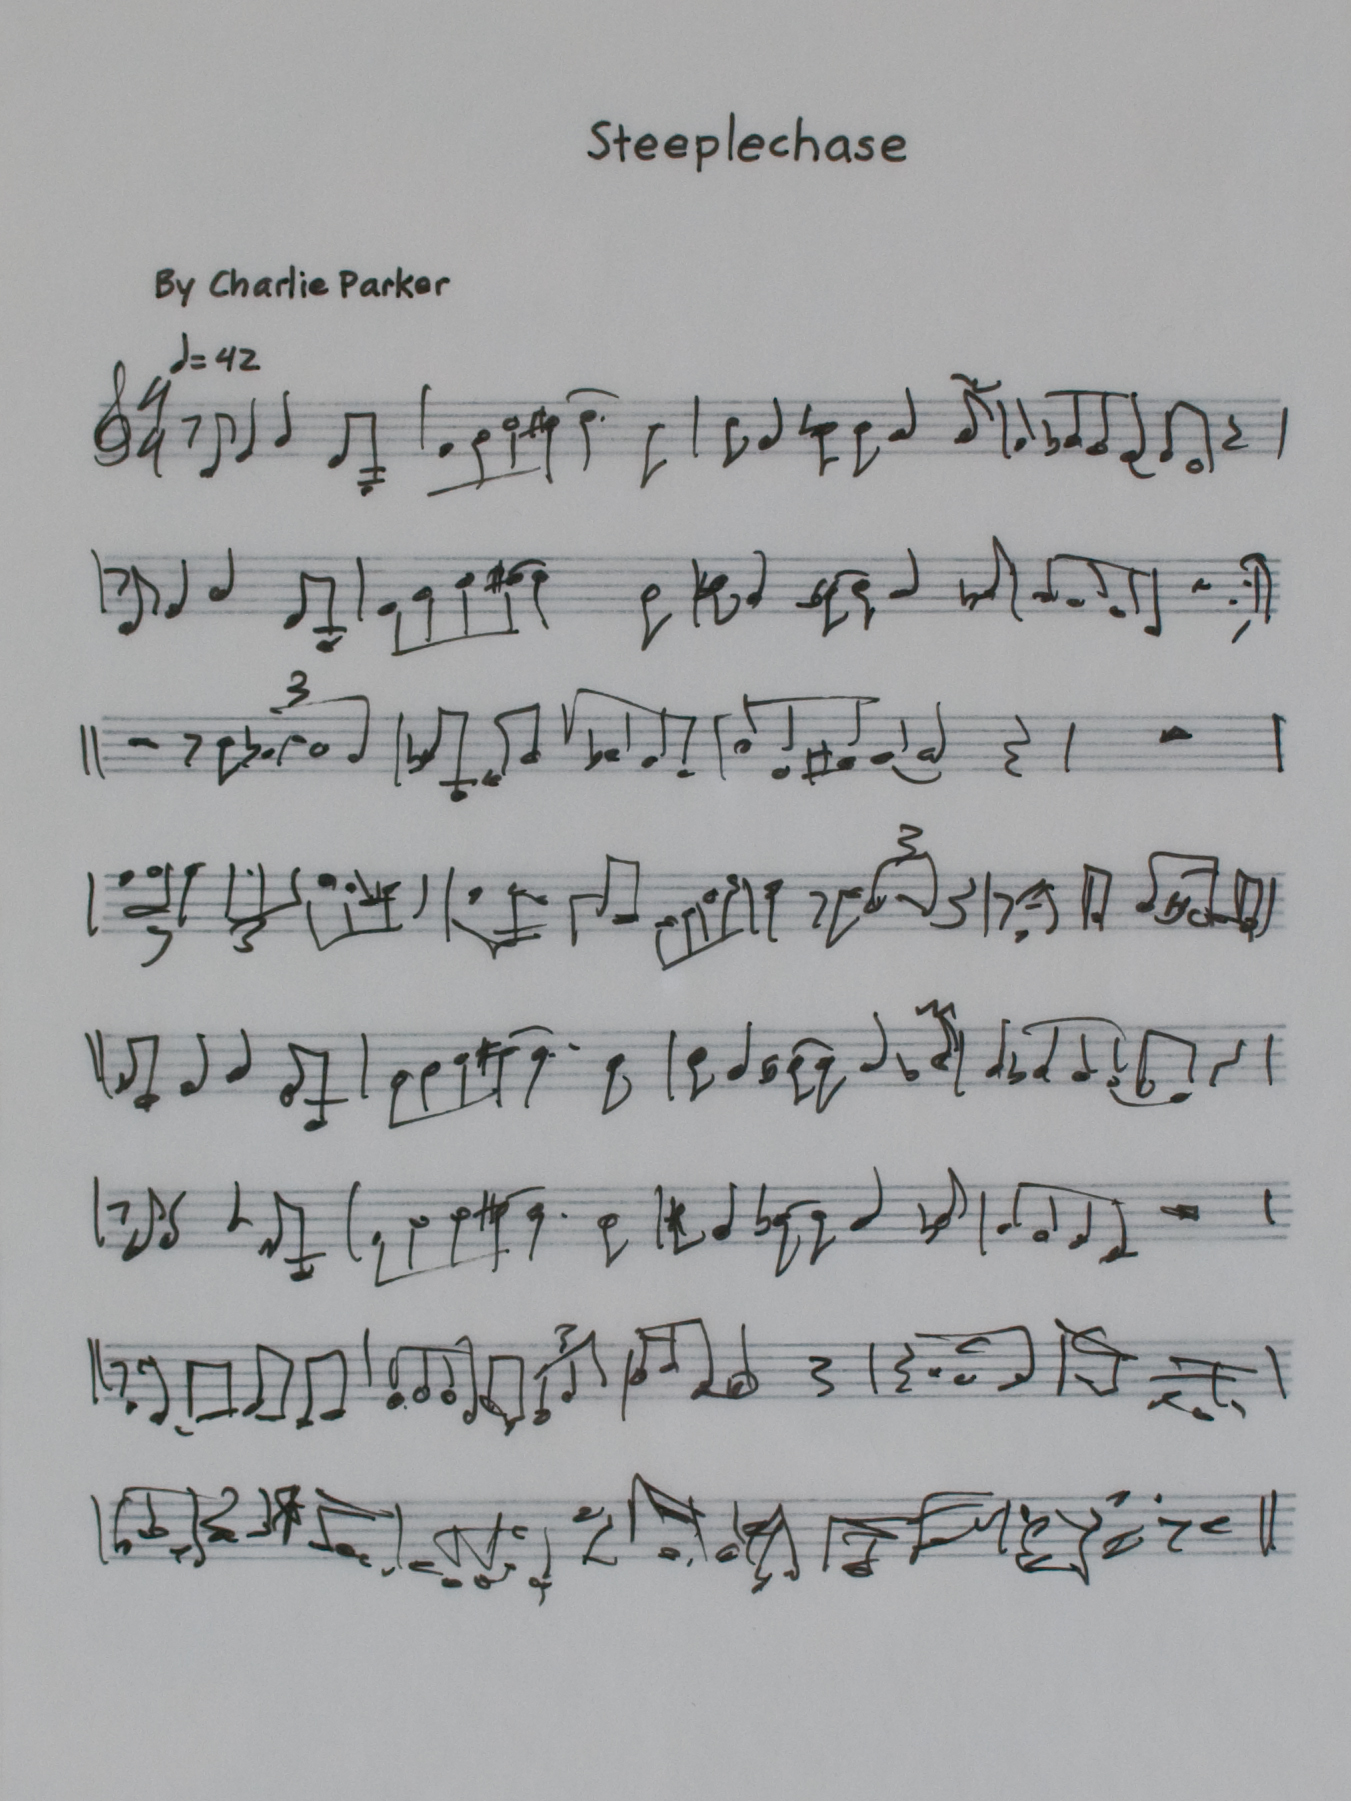 Steeplechase
By Charlie Parker
♩=42
4
4
3
3
3
3
3